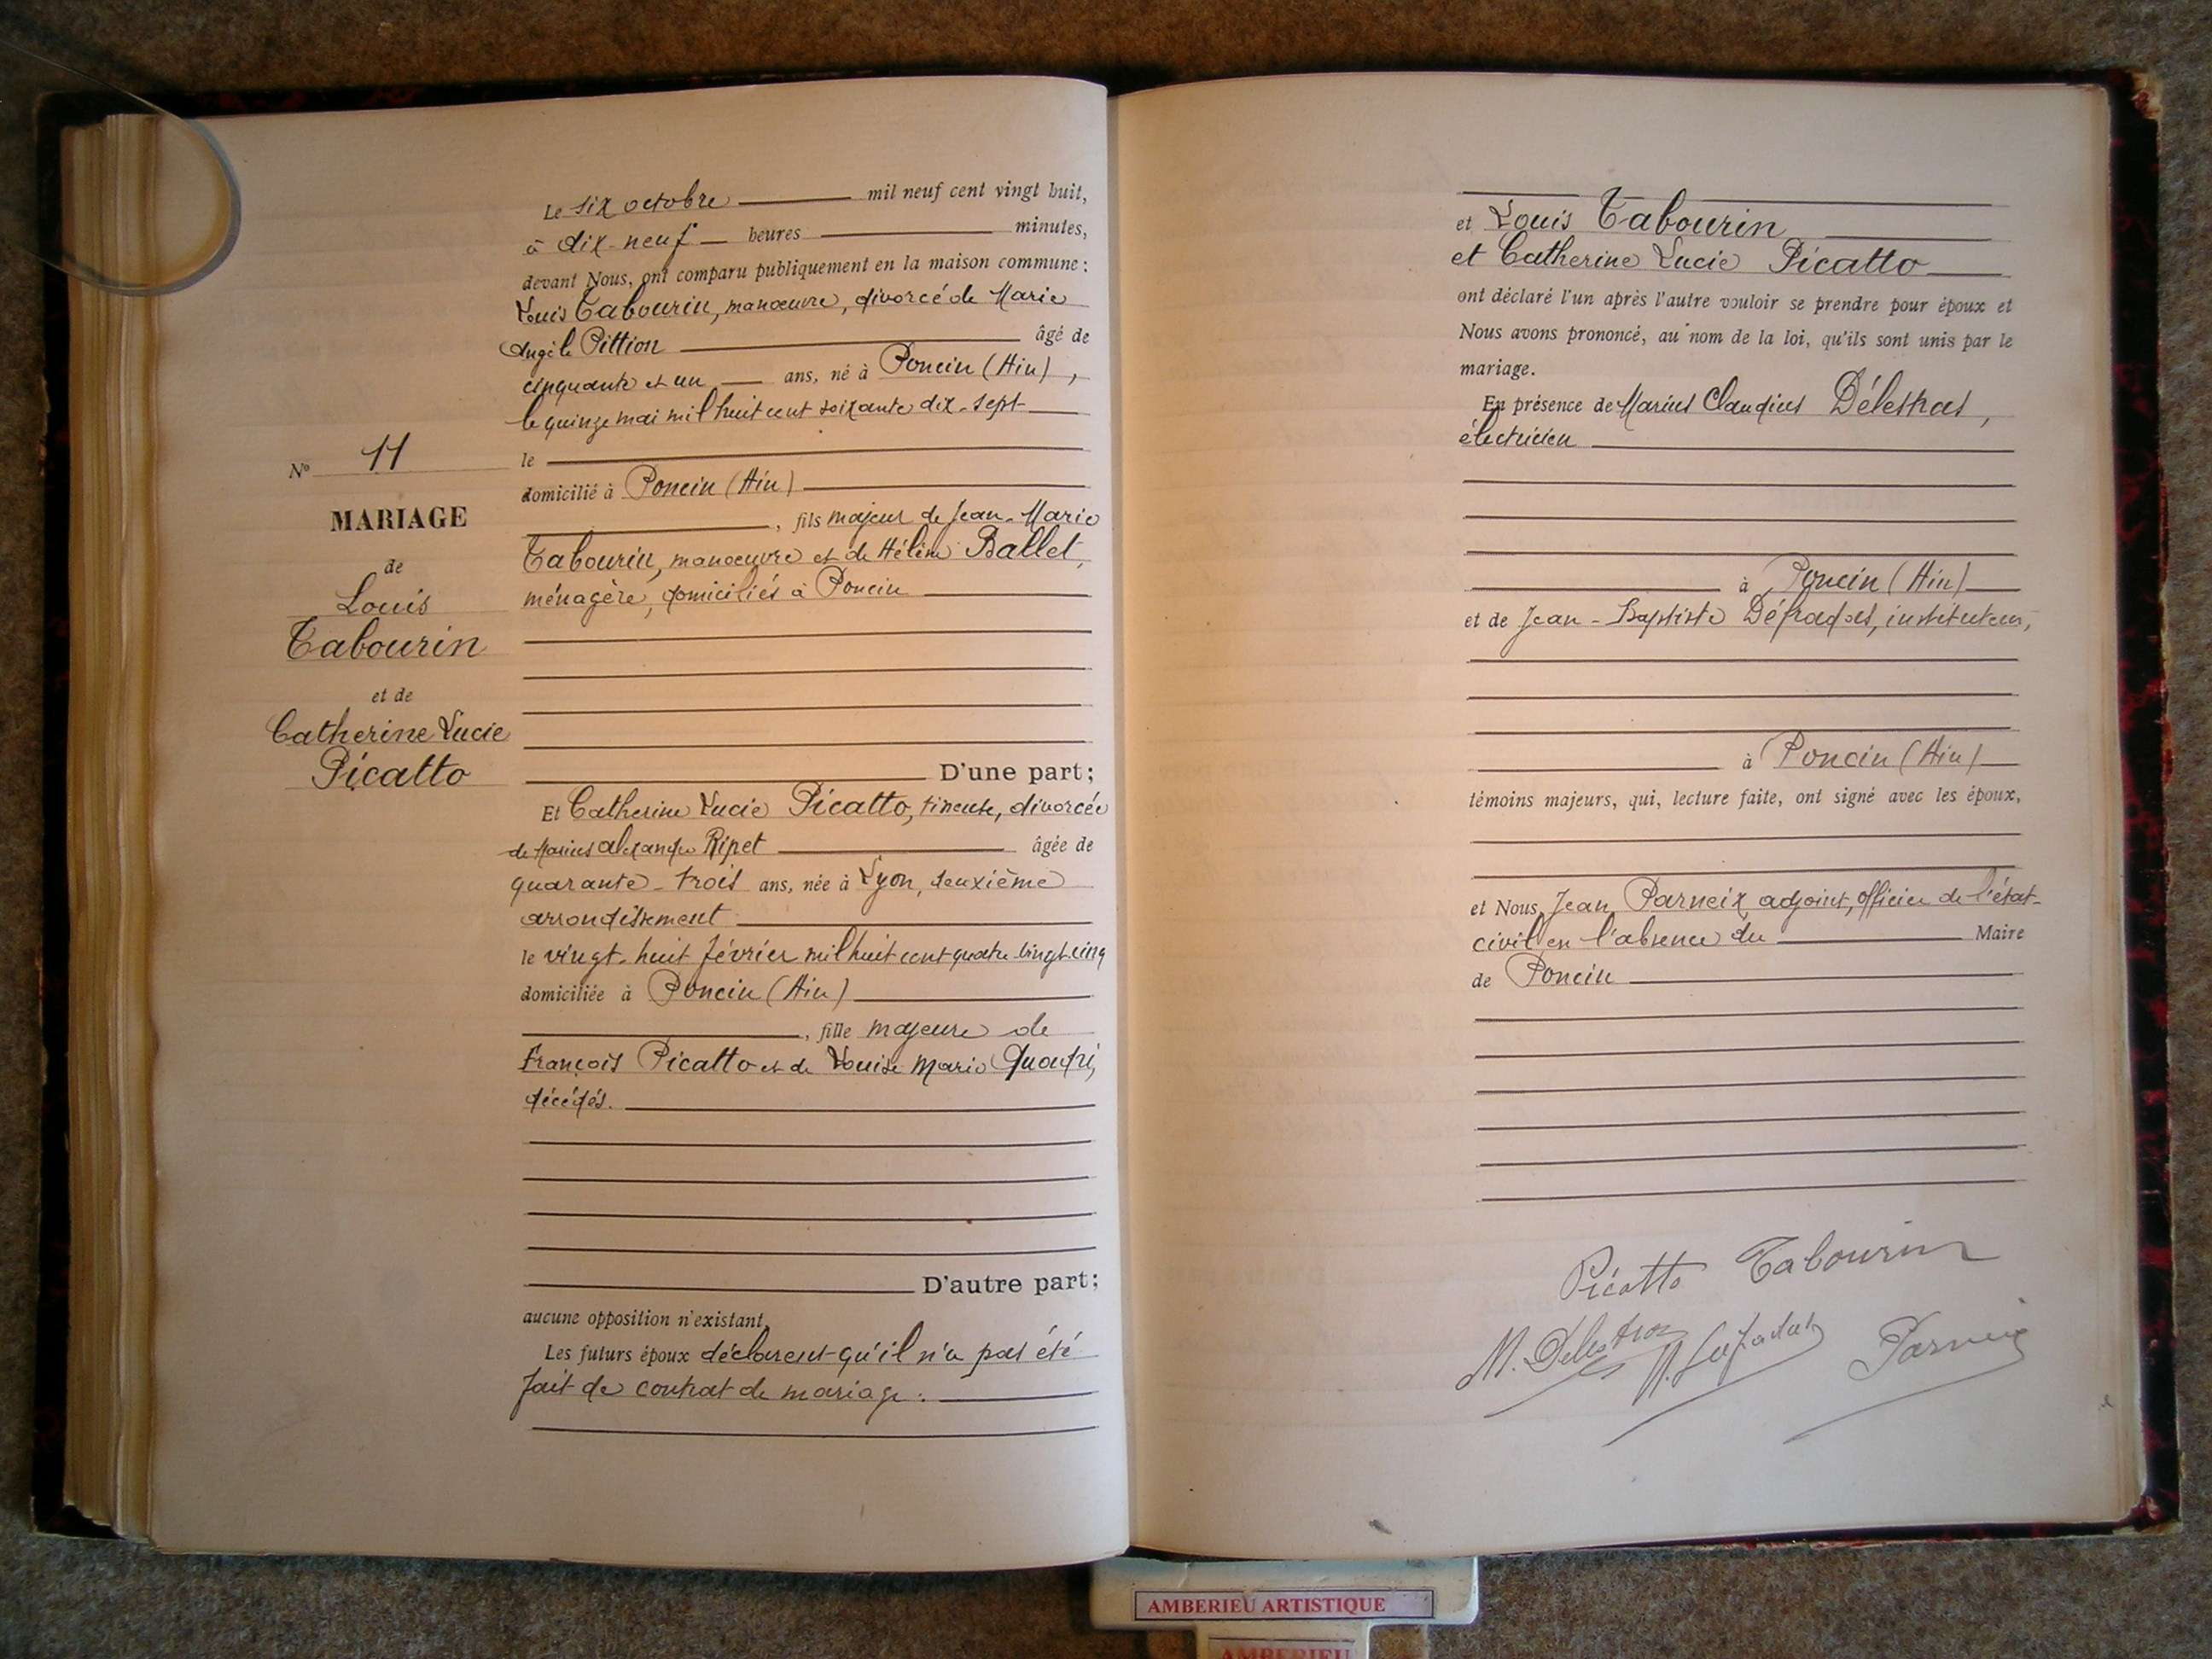 Le six octobre mil neuf cent vingt huit,
à dix-neuf heures minutes,
devant Nous, ont comparu publiquement en la maison commune :
Louis Tabourin, manœuvre, divorcé de Marie
Angèle Pittion âgé de
cinquante et un ans, né à Poncin (Ain),
le quinze mai mil huit cent soixante dix-sept
le
domicilié à Poncin (Ain)
, fils majeur de Jean-Marie
Tabourin, manoeuvre et de Hélène Ballet,
ménagère, domiciliés à Poncin
D'une part;
Et Catherine Lucie Picatto, divorcée
de Marius Alexandre Ripet âgée de
quarante-trois ans, née à Lyon, deuxième
arrondissement
le vingt-huit février mil huit cent quatre vingt cinq
domiciliée à Poncin (Ain)
, fille majeure de
François Picatto et de Louise Marie
décédés.
D'autre part;
aucune opposition n'existant,
Les futurs époux déclarent qu'il n'a pas été
fait de contrat de mariage.
N° 11
MARIAGE
de
Louis
Tabourin
et de
Catherine Lucie
Picatto
et Louis Tabourin
et Catherine Lucie Picatto
ont déclaré l'un après l'autre vouloir se prendre pour époux et
Nous avons prononcé, au nom de la loi, qu'ils sont unis par le
mariage.
En présence de Marius Claudius Délestras,
électricien
à Poncin (Ain)
et de Jean-Baptiste instituteur,
à Poncin (Ain)
témoins majeurs, qui, lecture faite, ont signé avec les époux,
et Nous, Jean Parneix, adjoint, officier de l'état-
civil en l'absence du Maire
de Poncin
Picatto Tabourin
M. Delestras Parneix
AMBERIEU ARTISTIQUE
AMBERIEU